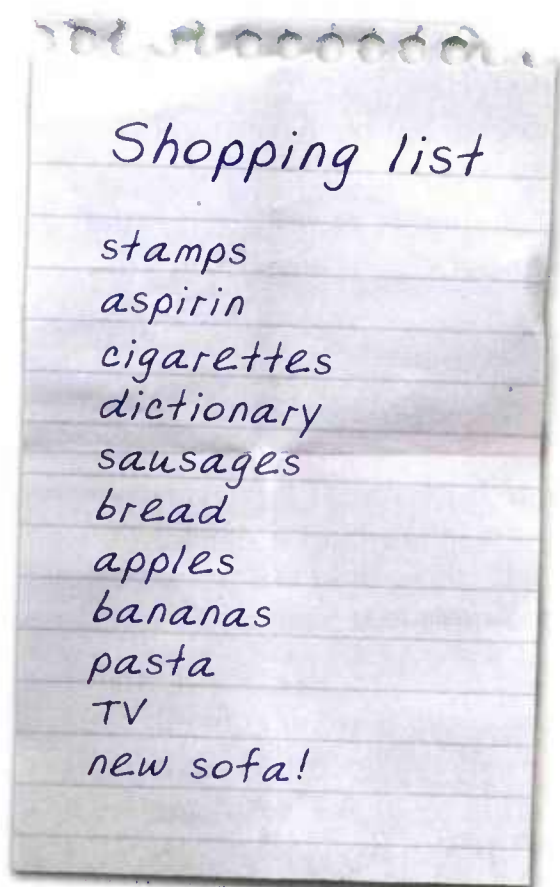 Shopping list
stamps
aspirin
cigarettes
dictionary
sausages
bread
apples
bananas
pasta
TV
new sofa!